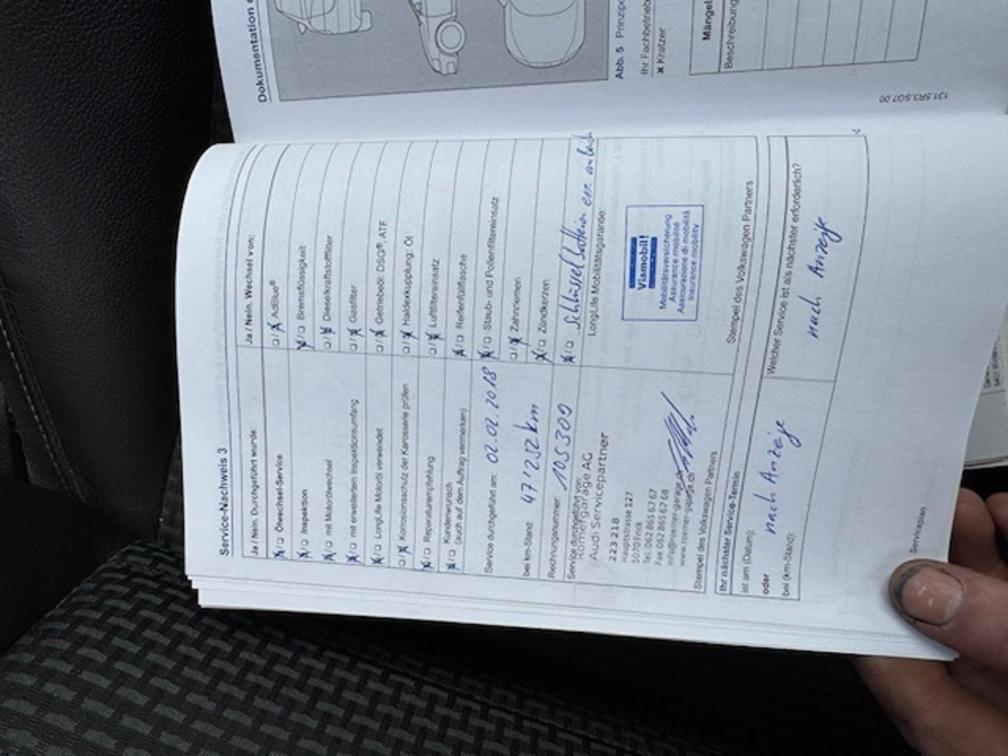 Service-Nachweis 3
Ja / Nein. Durchgeführt wurde:
☒/☐ Ölwechsel-Service
☒/☐ Inspektion
☒/☐ mit Motorölwechsel
☒/☐ mit erweitertem Inspektionsumfang
☒/☐ LongLife Motoröl verwendet
☐/☒ Korrosionsschutz der Karosserie prüfen
☒/☐ Reparaturempfehlung
☒/☐ Kundenwunsch
(auch auf dem Auftrag vermerken)
Service durchgeführt am: 02.02.2018
bei km-Stand: 47232 km
Rechnungsnummer: 105300
Service durchgeführt von:
Römergarage AG
Audi Servicepartner
223 218
Hauptstrasse 127
5070 Frick
Tel. 062 865 67 67
Fax 062 865 67 68
Stempel des Volkswagen Partners
Ja / Nein. Wechsel von:
☐/☒ AdBlue®
☒/☐ Bremsflüssigkeit
☐/☒ Dieselkraftstofffilter
☐/☒ Gasfilter
☐/☒ Getriebeöl: DSG®, ATF
☐/☒ Haldexkupplung: Öl
☐/☒ Luftfiltereinsatz
☒/☐ Reifenfüllflasche
☒/☐ Staub- und Pollenfiltereinsatz
☐/☒ Zahnriemen
☒/☐ Zündkerzen
☒/☐ Schlüssel
LongLife Mobilitätsgarantie:
Viamobil!
Mobilitätsversicherung
Assurance mobilité
Assicurazione di mobilità
Insurance mobility
Stempel des Volkswagen Partners
Ihr nächster Service-Termin
ist am (Datum):
nach Anzeige
oder
bei (km-Stand):
Welcher Service ist als nächster erforderlich?
nach Anzeige
Serviceplan
Dokumentation
Abb. 5
Ihr Fachbetrieb
✖ Kratzer
Mängel
Beschreibung
131.5R3.SG7.00